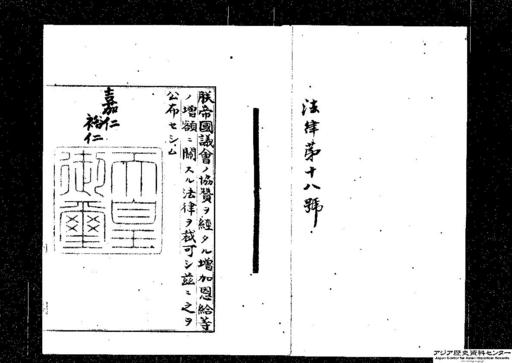 法律第十八號
朕帝國議會ノ協贊ヲ經タル増加恩給等
ノ増額ニ關スル法律ヲ裁可シ茲ニ之ヲ
公布セシム
嘉仁
裕仁
天皇
御璽
アジア歴史資料センター
Japan Center for Asian Historical Records